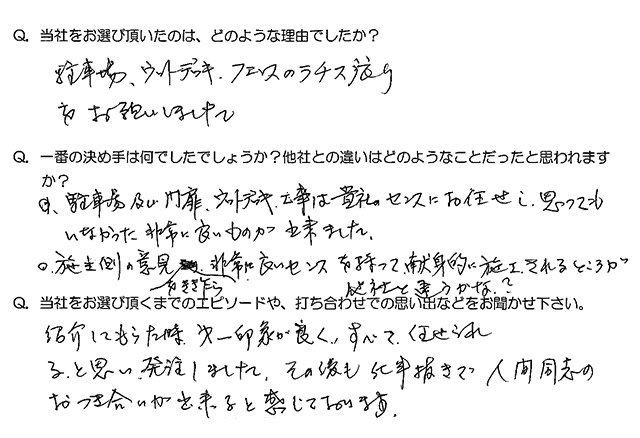 Q. 当社をお選び頂いたのは、どのような理由でしたか？
駐車場、ウットデッキ、フェンスのラチス張り
をお願いしました
Q. 一番の決め手は何でしたでしょうか？他社との違いはどのようなことだったと思われます
か？
駐車場及い門扉、ウットデッキ、工事は貴社のセンスにお任せし、思っても
いなかった非常に良いものが出来ました。
○. 施主側の意見をききながら非常に良いセンスを持って、献身的に施工されるところが
他社と違うかな？
Q. 当社をお選び頂くまでのエピソードや、打ち合わせでの思い出などをお聞かせ下さい。
紹介してもらった時、第一印象が良く、すべて、任せられ
ると思い、発注しました。その後も仕事抜きで人間同志の
おつき合いが出来ると感じております。